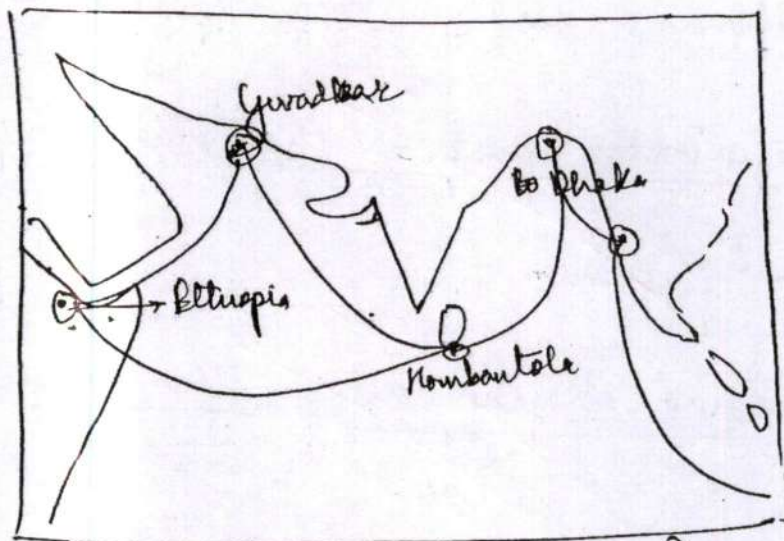 Gwadbar
Bo Dhaka
Ethiopia
Hombantola